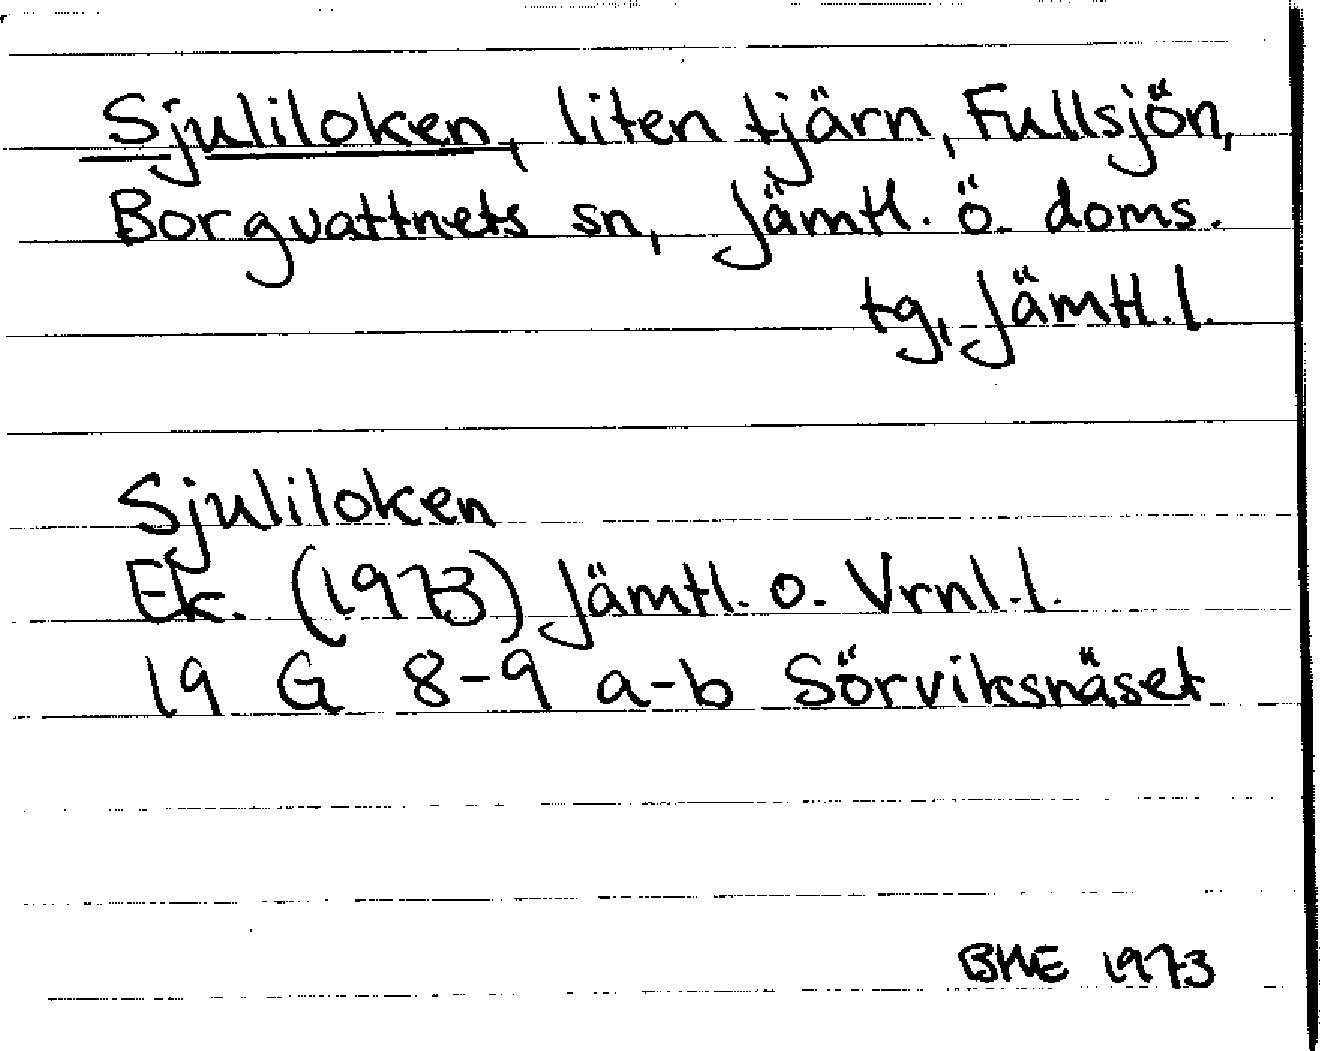 Sjuliloken, liten tjärn, Fullsjön,
Borgvattnets sn, Jämtl. ö. doms.
tg, Jämtl. l.
Sjuliloken
Ek. (1973) Jämtl. o. Vrnl. l.
19 G 8-9 a-b Sörviksnäset
BME 1973